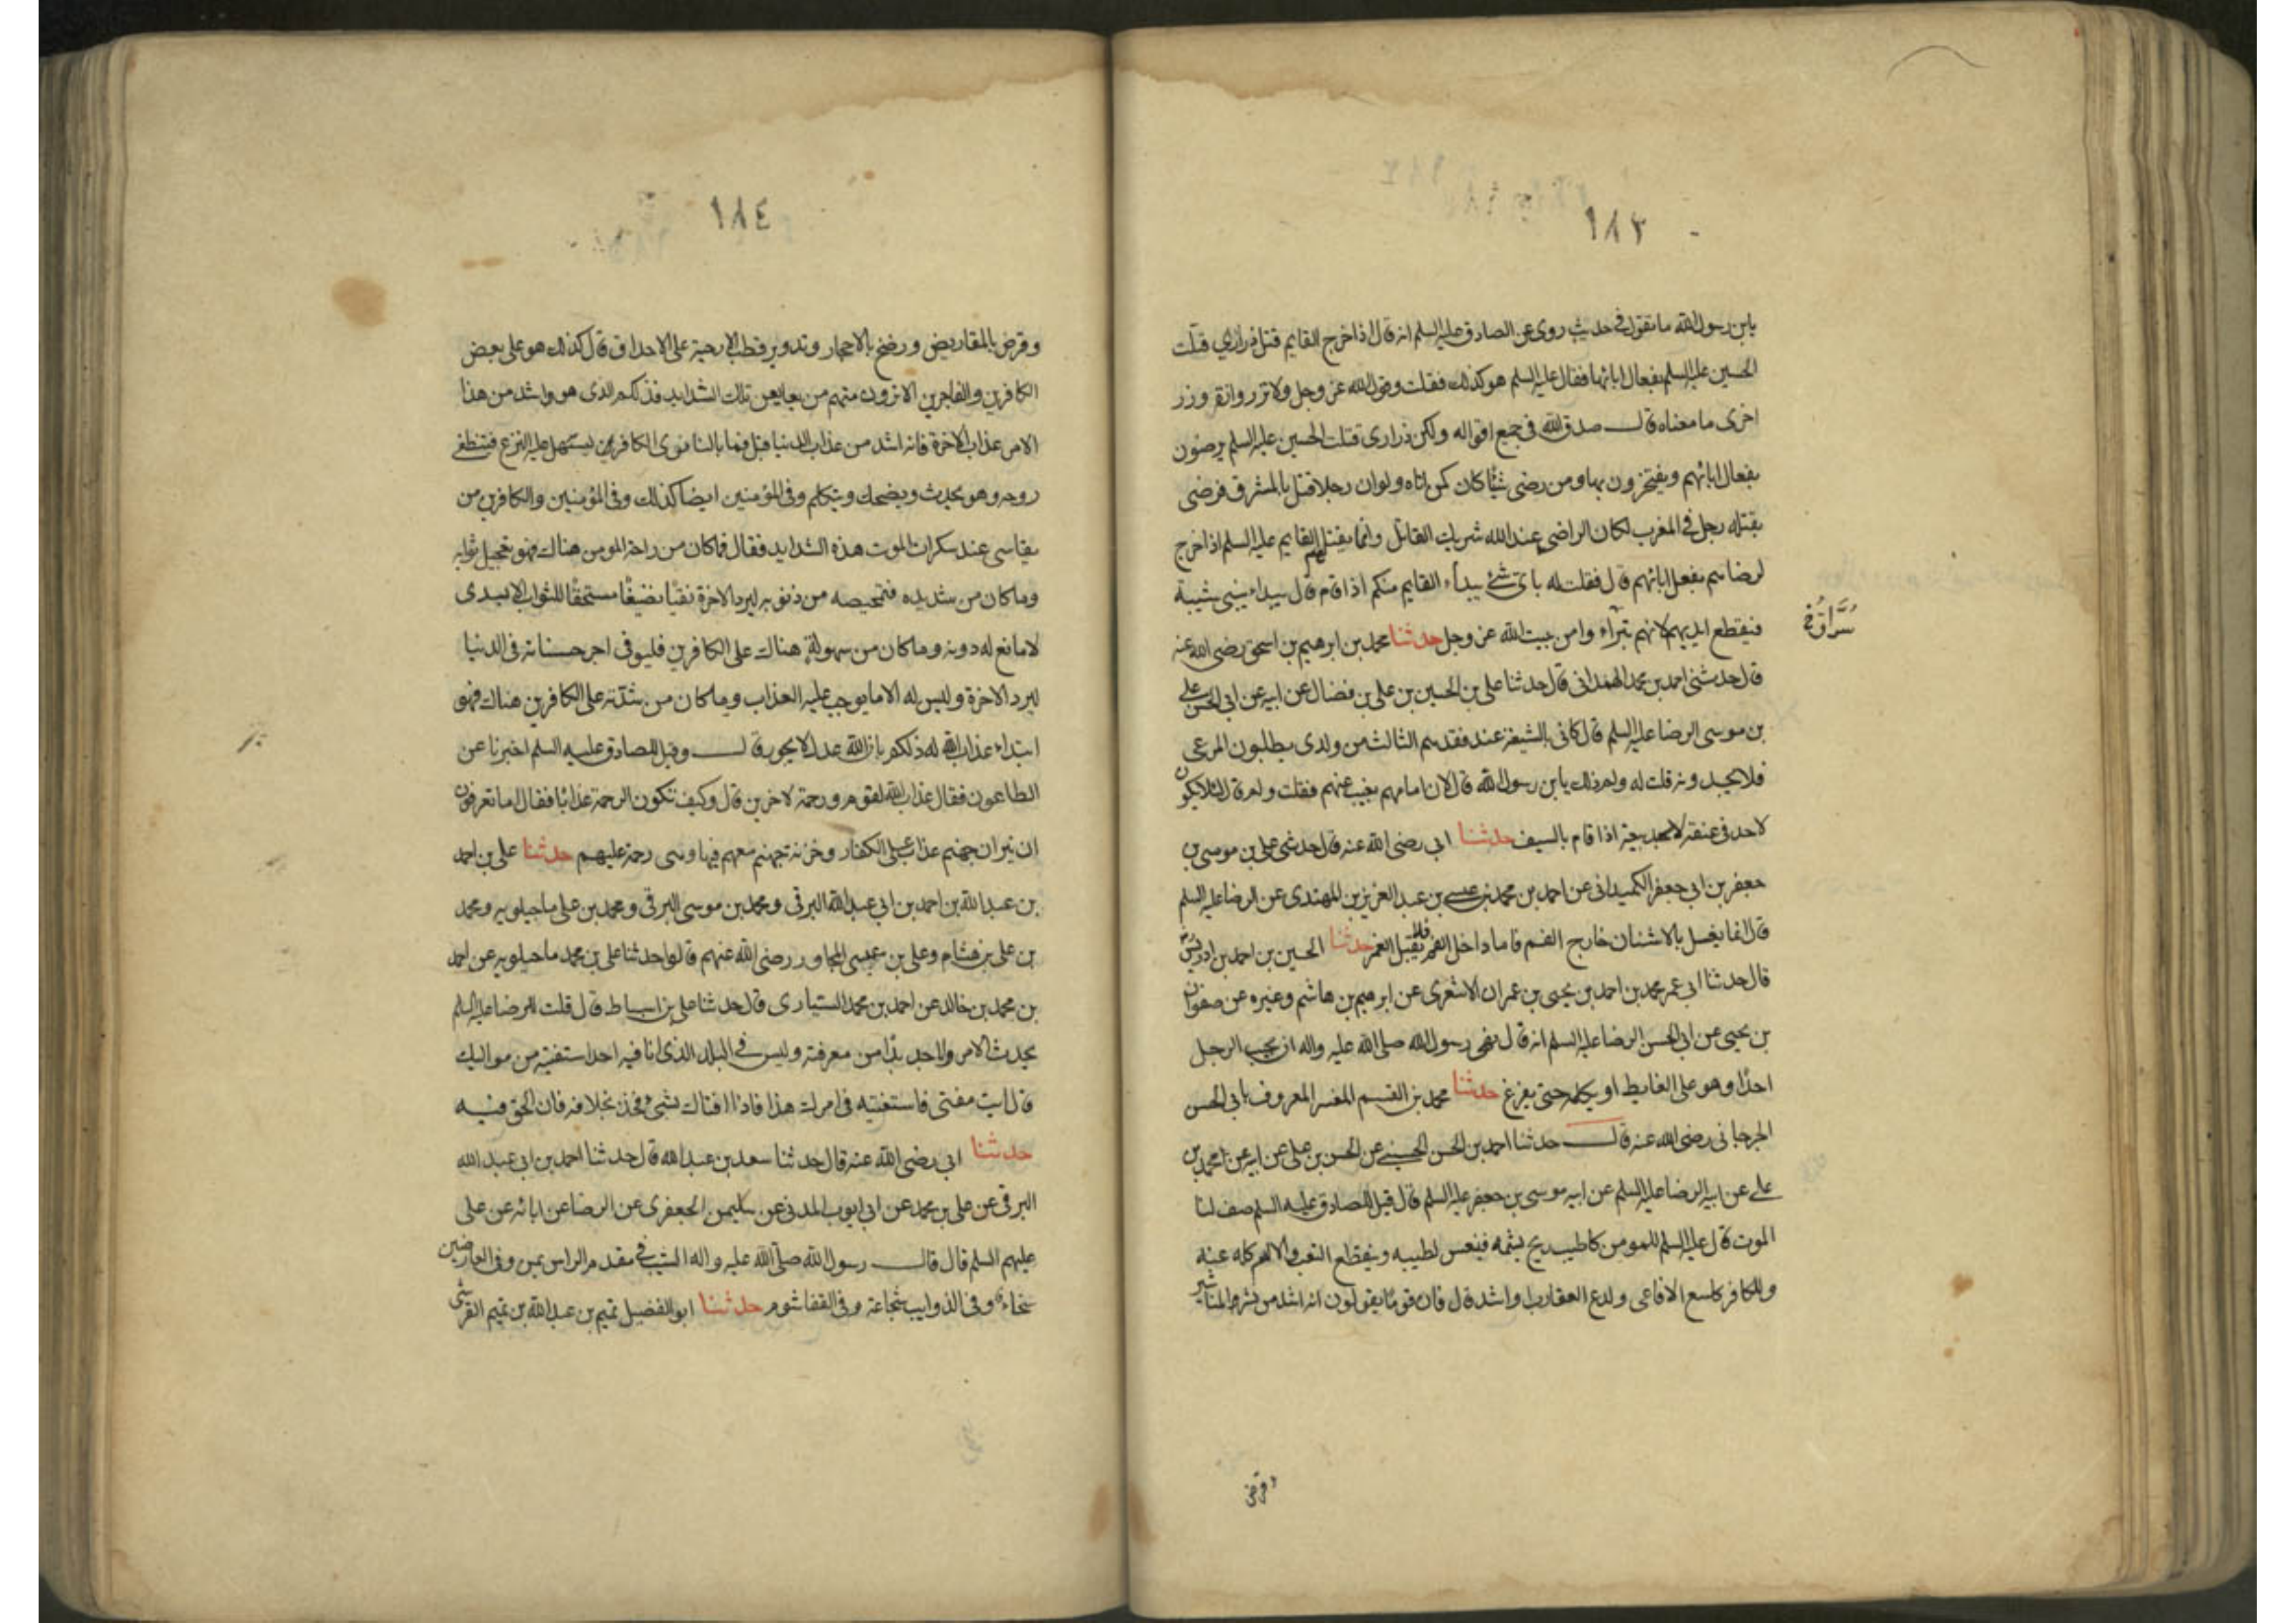 ١٨٣
يابن رسول الله ما تقول في حديث روى عن الصادق عليه السلم انه قال اذا خرج القايم قتل ذراري قتلت
الحسين عليه السلم بفعال ابائها فقال عليه السلم هو كذلك فقلت وقول الله عز وجل ولا تزر وازرة وزر
اخرى ما معناه قال صدق الله في جميع اقواله ولكن ذراري قتلت الحسين عليه السلم يرضون
بفعال ابائهم ويفتخرون بها ومن رضى شيئا كان كمن اتاه ولو ان رجلا قتل بالمشرق فرضى
بقتله رجل في المغرب لكان الراضي عند الله شريك القاتل وانما يقتلهم القايم عليه السلم اذا خرج
لرضاهم بفعل ابائهم قال فقلت له باي شئ يبداء القايم منكم اذا قام قال يبداء ببني شيبة
فيقطع ايديهم لانهم سراء وامن بيت الله عز وجل حدثنا محمد بن ابرهيم بن اسحق رضى الله عنه
سراق خ
قال حدثني احمد بن محمد الهمداني قال حدثنا علي بن الحسين بن علي بن فضال عن ابيه عن ابي الحسن علي
بن موسى الرضا عليه السلم قال كاني بالشيعة عند فقدهم الثالث من ولدى يطلبون المرعى
فلا يجدونه قلت له ولم ذلك يابن رسول الله قال لان امامهم يغيب عنهم فقلت ولم قال لئلا يكون
لاحد في عنقه لاحد بيعة اذا قام بالسيف حدثنا ابي رضى الله عنه قال حدثني علي بن موسى بن
جعفر بن ابي جعفر الكميداني عن احمد بن محمد بن عيسى بن عبد العزيز بن المهتدى عن الرضا عليه السلم
قال انما يغسل بالاشنان خارج الفم فاما داخل الفم فلا يقبل الغمر حدثنا الحسين بن احمد بن ادريس
قال حدثنا ابي عمر محمد بن احمد بن يحيى بن عمران الاشعرى عن ابرهيم بن هاشم وغيره عن صفوان
بن يحيى عن ابي الحسن الرضا عليه السلم انه قال نهى رسول الله صلى الله عليه واله ان يجيب الرجل
احدا وهو على الغايط او يكلمه حتى يفرغ حدثنا محمد بن القسم المفسر المعروف بابي الحسن
الجرجاني رضى الله عنه قال حدثنا احمد بن الحسن الحسيني عن الحسن بن علي عن ابيه عن محمد بن
علي عن ابيه الرضا عليه السلم عن ابيه موسى بن جعفر عليه السلم قال قيل للصادق عليه السلم صف لنا
الموت قال عليه السلم للمومن كاطيب ريح يشمه فينعس لطيبه وينقطع التعب والالم كله عنه
وللكافر كلسع الافاعى ولدع العقارب او اشد قال فان قوما يقولون انه اشد من نشر بالمناشير
وقرض
١٨٤
وقرض بالمقاريض ورضخ بالاحجار وتدوير قطب الارحية على الاحداق قال كذلك هو على بعض
الكافرين والفاجرين الا ترون منهم من يعاين تلك الشدايد فذلكم الذى هو واشد من هذا
الامن عذاب الاخرة فانه اشد من عذاب الدنيا قيل فما بالنا نرى الكافر من يسهل عليه النزع فتنطفى
روحه وهو يحدث ويضحك ويتكلم وفي المؤمنين ايضا كذلك وفي المؤمنين والكافرين من
يقاسى عند سكرات الموت هذه الشدايد فقال فماكان من راحة المومن هناك فهو تعجيل ثوابه
وماكان من شديده فتمحيصه من ذنوبه ليرد الاخرة نقيا نضيفا مستحقا للثواب الابدى
لا مانع له دونه وماكان من سهولة هناك على الكافرين فليوفى اجر حسناته في الدنيا
ليرد الاخرة وليس له الا ما يوجب عليه العذاب وماكان من شدته على الكافرين هناك فهو
ابتداء عذاب الله له ذلكم بان الله عدل لا يجور قال وقيل للصادق عليه السلم اخبرنا عن
الطاعون فقال عذاب الله لقوم ورحمة لاخرين قال وكيف تكون الرحمة عذابا فقال اما تعرفون
ان نيران جهنم عذاب على الكفار وخزنة جهنم معهم فيها وهى رحمة عليهم حدثنا علي بن احمد
بن عبد الله بن احمد بن ابي عبد الله البرقى ومحمد بن موسى البرقى ومحمد بن علي ماجيلويه ومحمد
بن علي بن هشام وعلي بن عيسى المجاور رضى الله عنهم قالوا حدثنا علي بن محمد ماجيلويه عن احمد
بن محمد بن خالد عن احمد بن محمد السيارى قال حدثنا علي بن اسباط قال قلت للرضا عليه السلم
يحدث الامر ولا اجد بدا من معرفته وليس في البلد الذى انا فيه احد استفتيه من مواليك
قال ايت مفتى فاستفتيه في امرك هذا فاذا افتاك بشئ فخذ بخلافه فان الحق فيه
حدثنا ابي رضى الله عنه قال حدثنا سعد بن عبد الله قال حدثنا احمد بن ابي عبد الله
البرقى عن علي بن محمد عن ابي ايوب المدنى عن سليمن الجعفرى عن الرضا عن ابائه عن علي
عليهم السلم قال قال رسول الله صلى الله عليه واله الشيب في مقدم الراس يمن وفي العارضين
سخاء وفي الذوايب شجاعة وفي القفا شوم حدثنا ابو الفضيل تميم بن عبد الله بن تميم القرشى